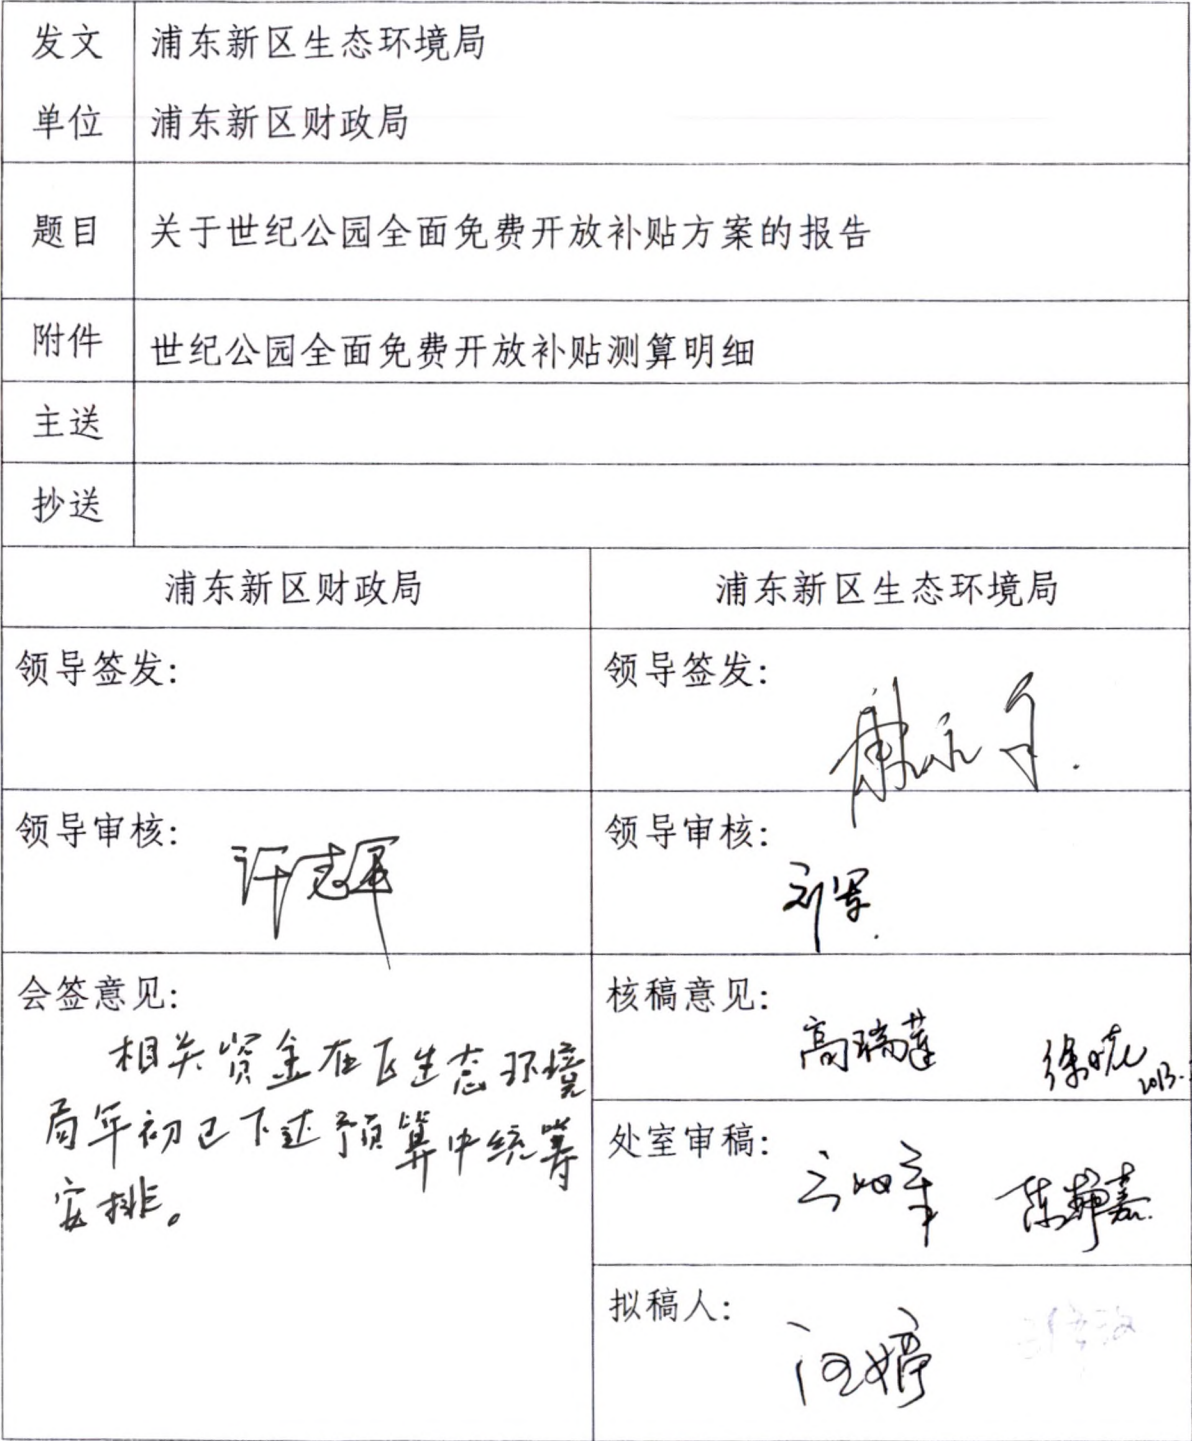 发文
单位
浦东新区生态环境局
浦东新区财政局
题目
关于世纪公园全面免费开放补贴方案的报告
附件
世纪公园全面免费开放补贴测算明细
主送
抄送
浦东新区财政局
浦东新区生态环境局
领导签发:
领导签发:
领导审核:
许志军
领导审核:
刘军
会签意见:
相关资金在区生态环境
局年初已下达预算中统筹
安排。
核稿意见:
高瑞莲
徐晓
处室审稿:
陈静嘉
拟稿人:
汪婷